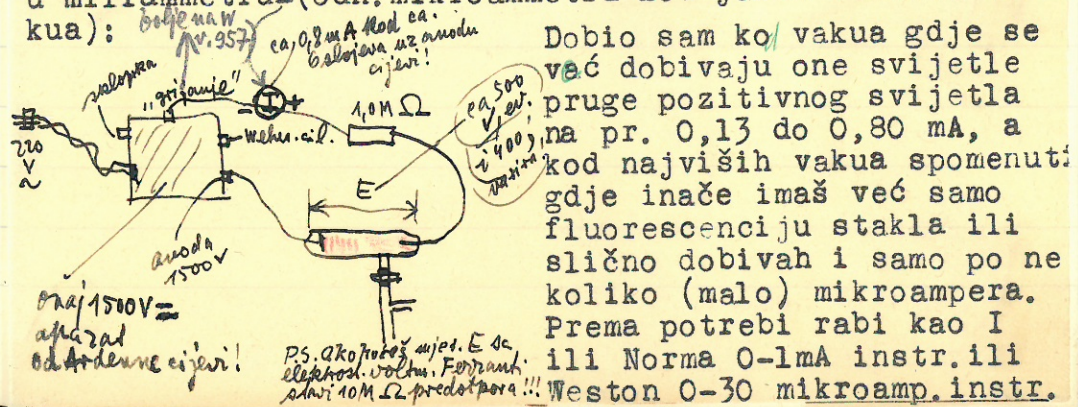 u miliammetral(odn.mikroammetru
kua):
bolje na W
v. 957)
ca, 0,8 mA kod ca.
6 slojeva uz anodu
cijevi!
sklopka
„grijanje"
- I +
1,0 M Ω
ca, 500
V, ev.
i 400,!
220
V
~
Wehn. cil.
E
anoda
1500 V
onaj 1500 V =
aparat
od Ardenne cijevi!
P.S. ako hoćeš mjer. E sa
elektrost. voltm. Ferranti
stavi 10 M Ω predotpora!!!
Dobio sam kod vakua gdje se
već dobivaju one svijetle
pruge pozitivnog svijetla
na pr. 0,13 do 0,80 mA, a
kod najviših vakua spomenuti
gdje inače imaš već samo
fluorescenciju stakla ili
slično dobivah i samo po ne
koliko (malo) mikroampera.
Prema potrebi rabi kao I
ili Norma 0-1mA instr.ili
Weston 0-30 mikroamp.instr.